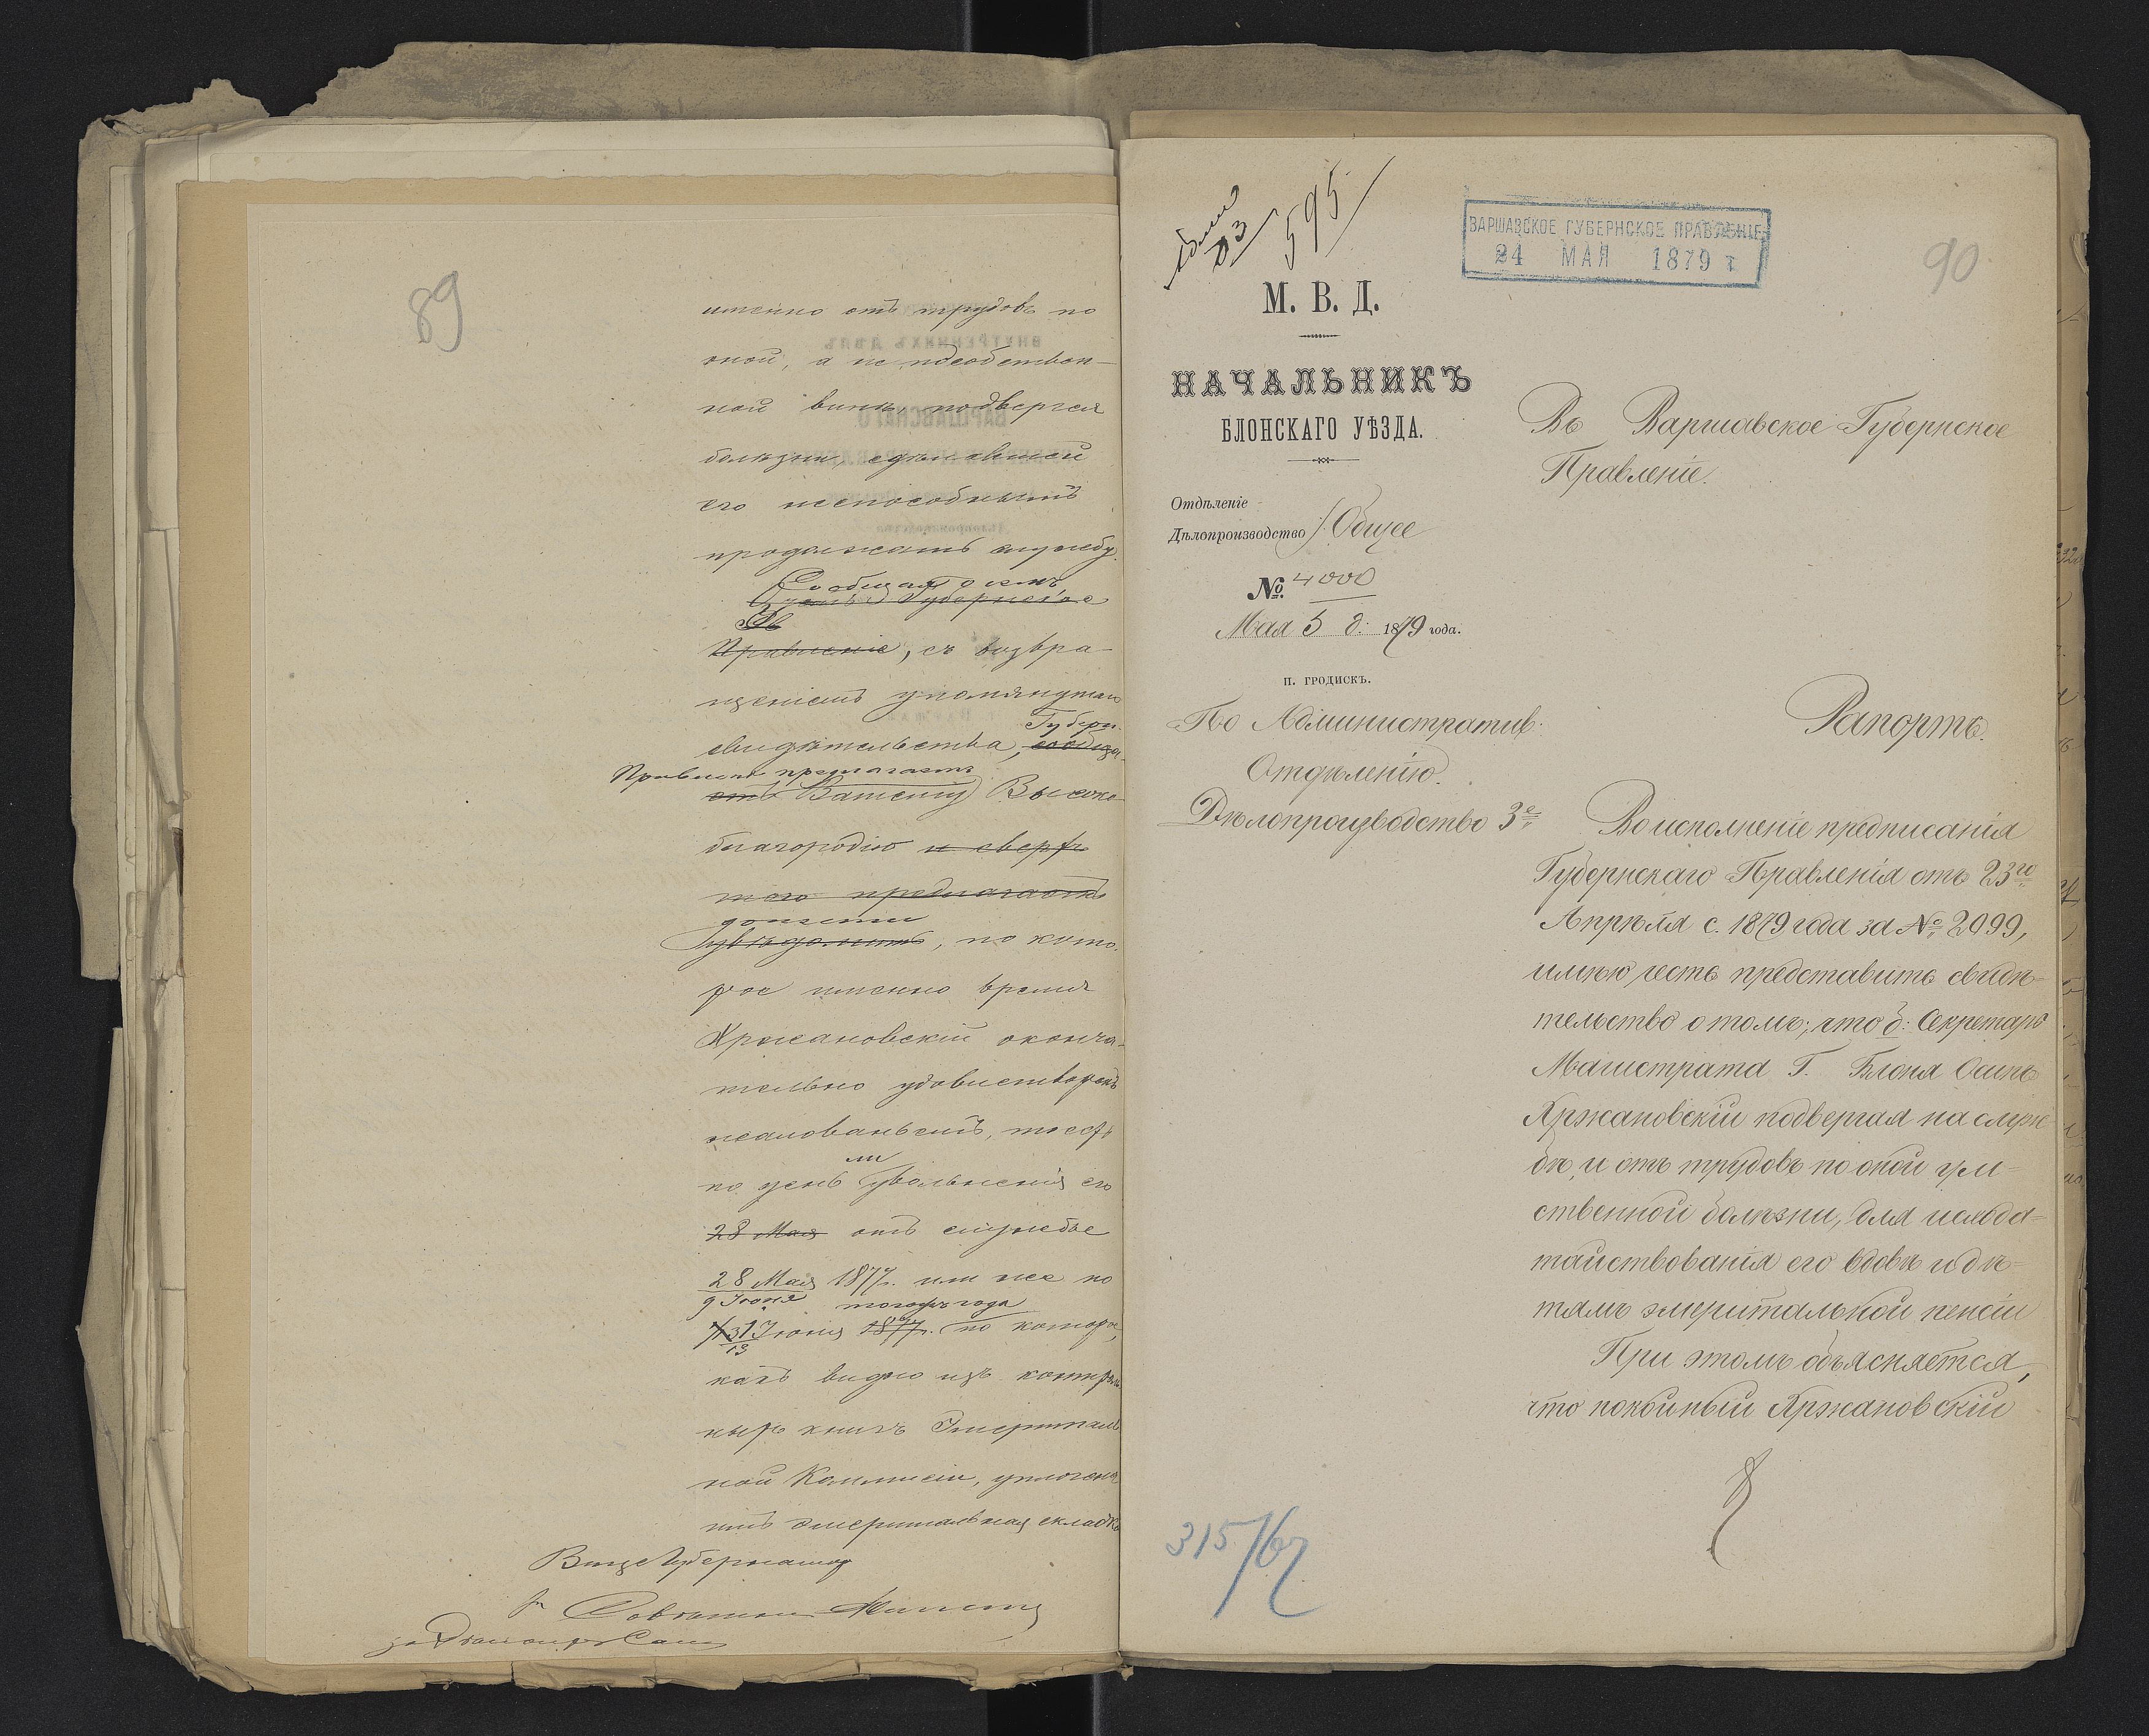 89
именно отъ трудовъ по
оной, а не по собствен-
ной винѣ подвергся
болѣзни сдѣлавшей
его неспособнымъ
продолжать службу.
Сообщая о семъ,
Губернское
Правленіе, съ возвра-
щеніемъ упомянутаго
Губерн.
свидѣтельства, сообща-
Правленіе предлагаетъ
етъ Вашему Высоко-
благородію и сверхъ
того предлагаетъ
донести
увѣдомить, по кото-
рое именно время
Хржановскій оконча-
тельно удовлетворенъ
жалованьемъ, то есть
ли
по день увольненія его
28 Мая отъ службы
28 Мая 1877 г. или же по
9 Іюня того же года
1/13 Іюня 1877 г. по которое,
какъ видно изъ контроль
ныхъ книгъ Эмериталь
ной Коммисіи, уплочена
имъ эмеритальная складка
Вице Губернаторъ
Совѣтникъ
за
595
ВАРШАВСКОЕ ГУБЕРНСКОЕ ПРАВЛЕНІЕ
24 МАЯ 1879 г.
90
М. В. Д.
НАЧАЛЬНИКЪ
БЛОНСКАГО УѢЗДА.
Отдѣленіе
Дѣлопроизводство Общее
№ 4000
Мая 5 д. 1879 года.
п. ГРОДИСКЪ.
По Административ:
Отдѣленію.
Дѣлопроизводство 3е
Въ Варшавское Губернское
Правленіе.
Рапортъ.
Во исполненіе предписанія
Губернскаго Правленія отъ 23го
Апрѣля с. 1879 года за № 2099,
имѣю честь представить свидѣ-
тельство о томъ, что б: Секретарь
Магистрата Г. Блоня Осипъ
Хржановскій подвергая на служ
бѣ, и отъ трудовъ по оной ум-
ственной болѣзни, для исхода-
тайствованія его вдовѣ и дѣ-
тямъ эмеритальной пенсіи
При этомъ объясняется,
что покойный Хржановскій
315/67